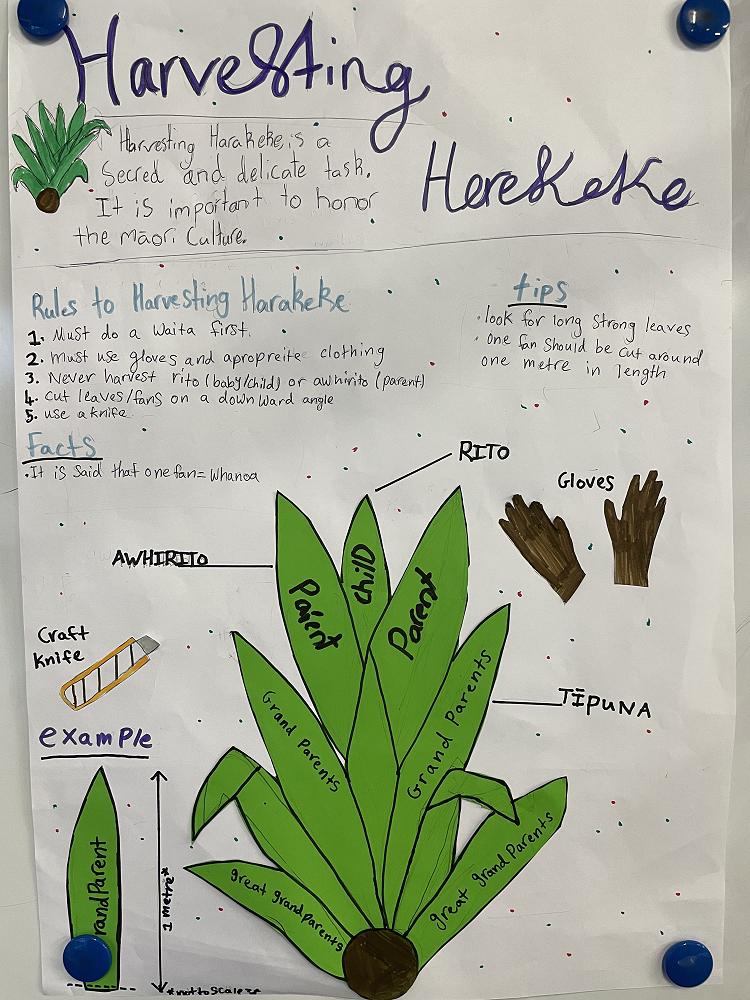 Harvesting
HereKeKe
Harvesting Harakeke is a
Secred and delicate task.
It is important to honor
the māori Culture.
Rules to Harvesting Harakeke
1. Must do a Waita first.
2. Must use gloves and apropreite clothing
3. Never harvest rito (baby/child) or awhirito (parent)
4. Cut leaves/fans on a downward angle
5. use a knife
tips
· look for long strong leaves
· one fan should be cut around
one metre in length
Facts
· It is said that one fan = whanoa
RITO
Gloves
AWHIRITO
Parent
child
Parent
Craft
knife
Grand Parents
Grand Parents
TĪPUNA
example
randParent
1 metre*
*not to scale*
great grandparents
great grand parents